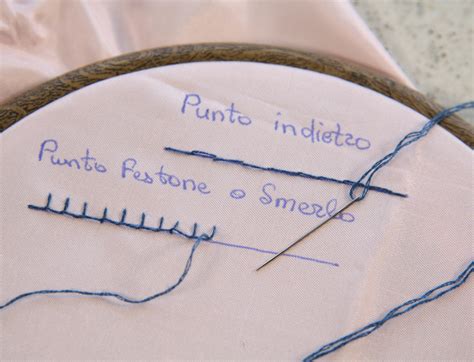 Punto indietro
Punto Festone o Smerlo